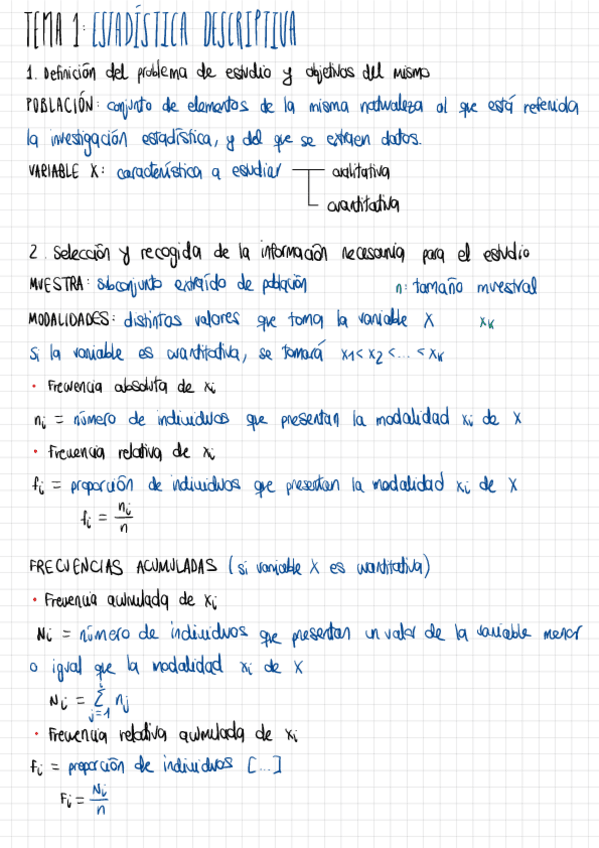 TEMA 1: ESTADÍSTICA DESCRIPTIVA
1. Definición del problema de estudio y objetivos del mismo
POBLACIÓN: conjunto de elementos de la misma naturaleza al que está referida
la investigación estadística, y del que se extraen datos.
VARIABLE X: característica a estudiar cualitativa
cuantitativa
2. Selección y recogida de la información necesaria para el estudio
MUESTRA: subconjunto extraído de población n: tamaño muestral
MODALIDADES: distintos valores que toma la variable X xₖ
Si la variable es cuantitativa, se tomará x₁ < x₂ < ... < xₖ
• Frecuencia absoluta de xᵢ
nᵢ = número de individuos que presentan la modalidad xᵢ de X
• Frecuencia relativa de xᵢ
fᵢ = proporción de individuos que presentan la modalidad xᵢ de X
fᵢ = nᵢ/n
FRECUENCIAS ACUMULADAS (si variable X es cuantitativa)
• Frecuencia acumulada de xᵢ
Nᵢ = número de individuos que presentan un valor de la variable menor
o igual que la modalidad xᵢ de X
Nᵢ = Σ nⱼ
j=1
• Frecuencia relativa acumulada de xᵢ
fᵢ = proporción de individuos [...]
Fᵢ = Nᵢ/n